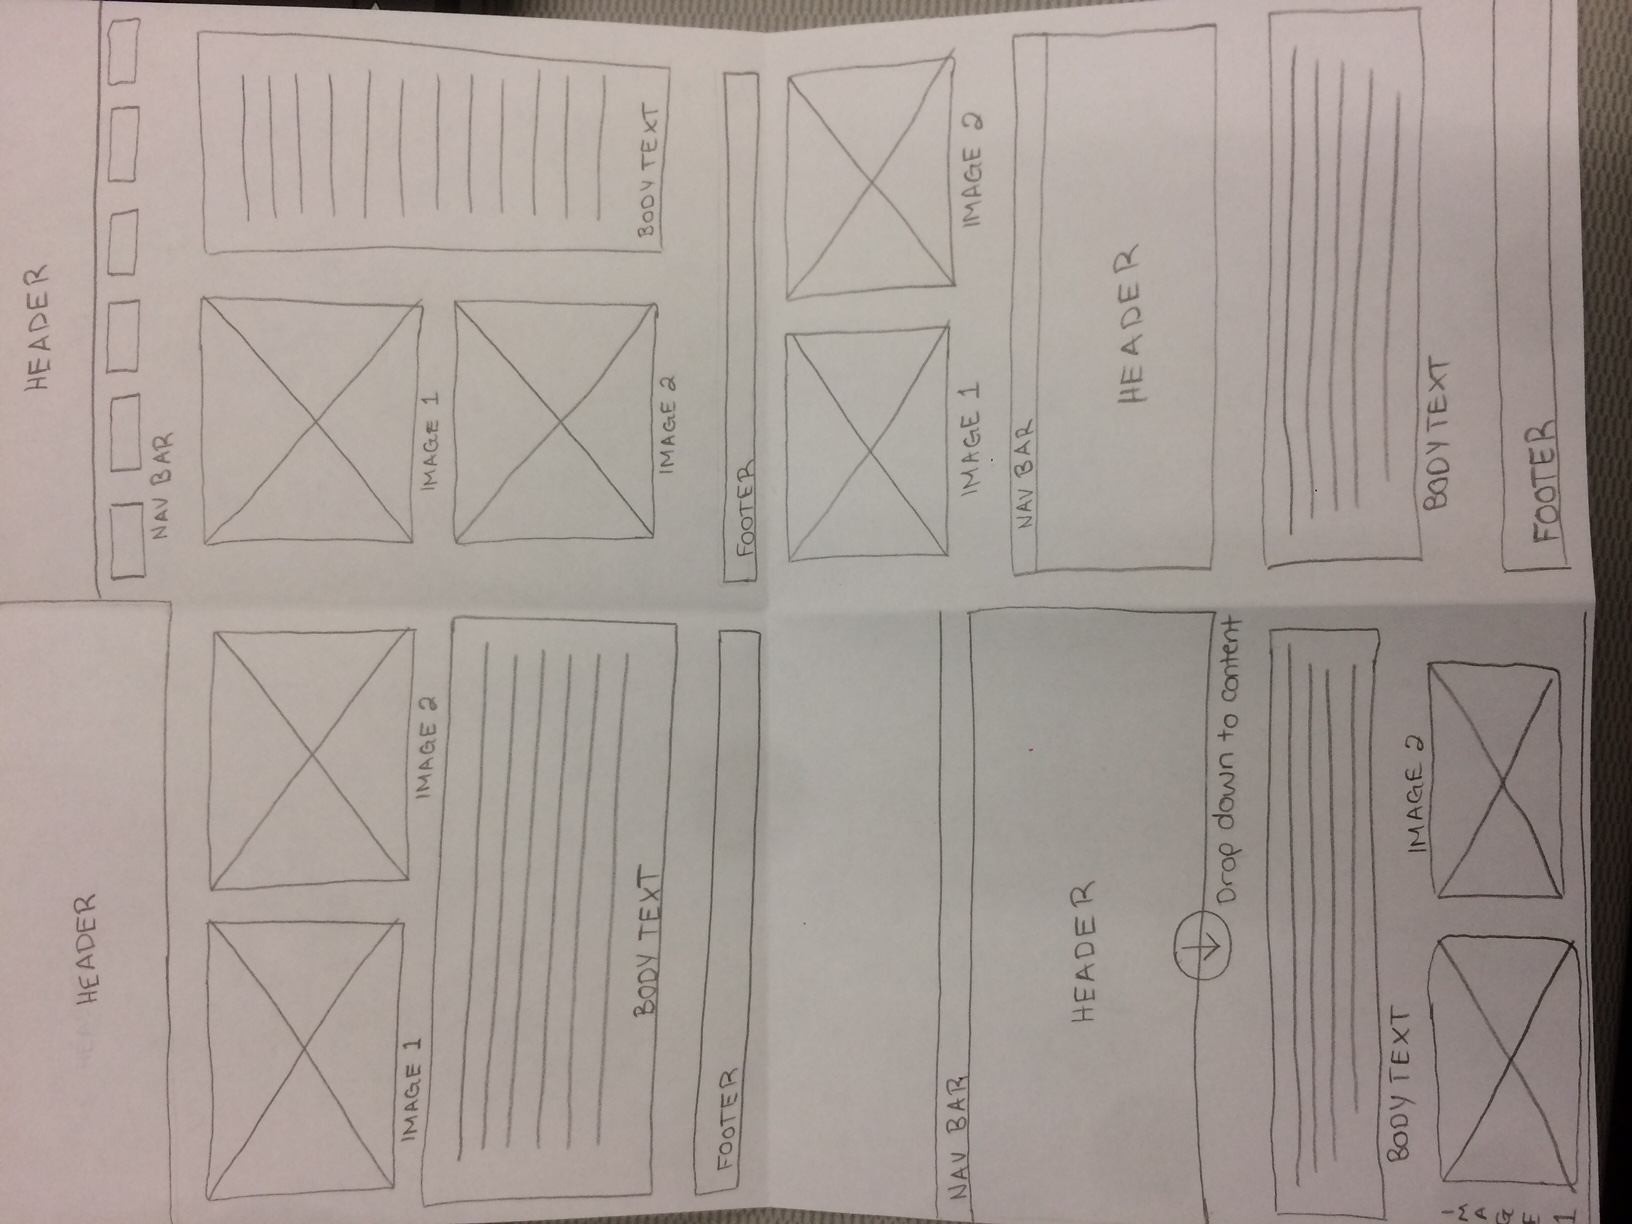 HEADER
IMAGE 1
IMAGE 2
BODY TEXT
FOOTER
HEADER
NAV BAR
IMAGE 1
IMAGE 2
BODY TEXT
FOOTER
NAV BAR
HEADER
Drop down to content
BODY TEXT
IMAGE 1
IMAGE 2
IMAGE 1
IMAGE 2
NAV BAR
HEADER
BODY TEXT
FOOTER